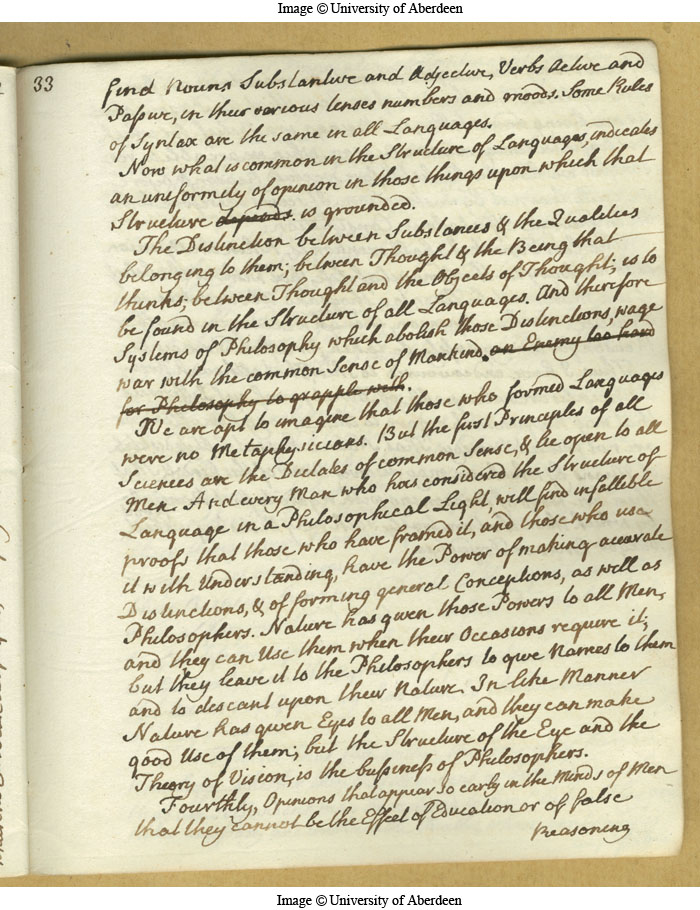 Image © University of Aberdeen
33
find Nouns Substantive and Adjective, Verbs Active and
Passive, in their various tenses numbers and moods. Some Rules
of Syntax are the same in all Languages.
Now what is common in the Structure of Languages, indicates
an uniformity of opinion in those things upon which that
Structure depends. is grounded.
The Distinction between Substances & the Qualities
belonging to them; between Thought & the Being that
thinks; between Thought and the Objects of Thought; is to
be found in the Structure of all Languages. And therefore
Systems of Philosophy which abolish those Distinctions, wage
war with the common Sense of Mankind, an Enemy too hard
for Philosophy to grapple with.
We are apt to imagine that those who formed Languages
were no Metaphysicians. But the first Principles of all
Sciences are the Dictates of common Sense, & lie open to all
Men. And every Man who has considered the Structure of
Language in a Philosophical Light, will find infallible
proofs that those who have framed it, and those who use
it with Understanding, have the Power of making accurate
Distinctions, & of forming general Conceptions, as well as
Philosophers. Nature has given those Powers to all Men,
and they can Use them when their Occasions require it;
but they leave it to the Philosophers to give Names to them
and to descant upon their Nature. In like Manner
Nature has given Eyes to all Men, and they can make
good Use of them; but the Structure of the Eye and the
Theory of Vision, is the business of Philosophers.
Fourthly, Opinions that appear so early in the Minds of Men
that they cannot be the Effect of Education or of false
Reasoning
Image © University of Aberdeen